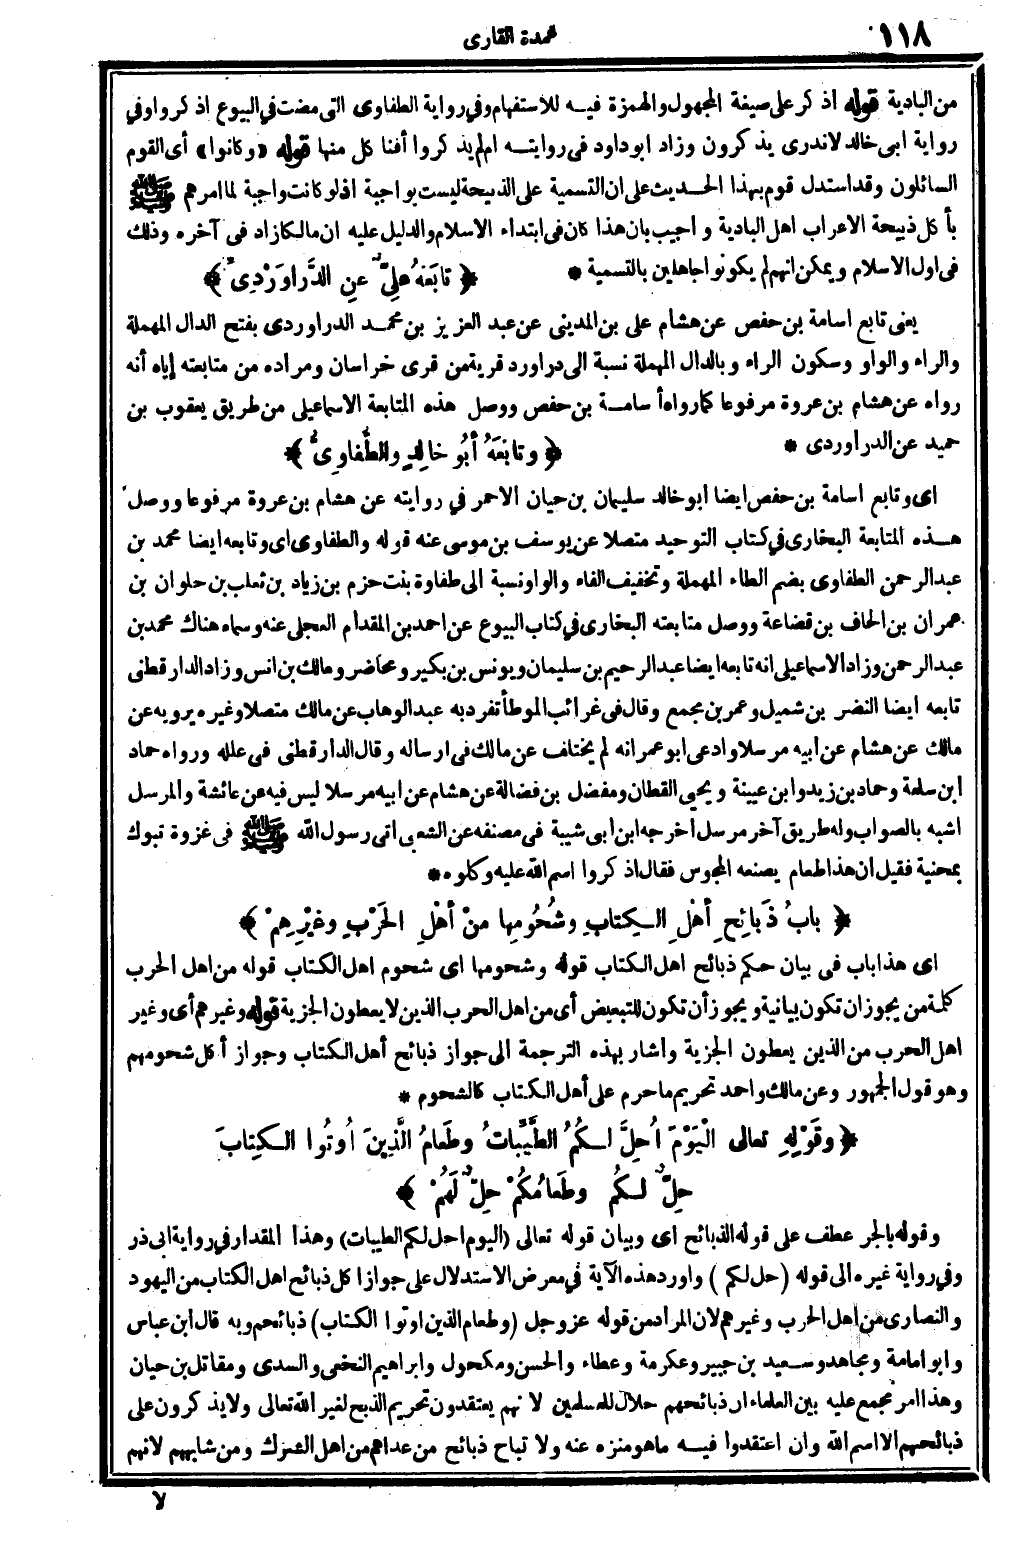 ١١٨
عمدة القارى
من البادية قوله اذكر على صيغة المجهول والهمزة فيه للاستفهام وفي رواية الطفاوى التى مضت في البيوع اذكروا وفي
رواية ابى خالد لاندرى يذكرون وزاد ابوداود فى روايته ام لم يذكروا أفنا كل منها قوله «وكانوا» أى القوم
السائلون وقد استدل قوم بهذا الحديث على ان التسمية على الذبيحة ليست بواجبة اذ لو كانت واجبة لما امرهم ﷺ
بأكل ذبيحة الاعراب اهل البادية و اجيب بان هذا كان فى ابتداء الاسلام والدليل عليه ان مالكا زاد فى آخره وذلك
فى اول الاسلام ويمكن انهم لم يكونوا جاهلين بالتسمية *
﴿ تابَعَهُ عَلِىٌّ عَنِ الدَّرَاوَرْدِىِّ ﴾
يعنى تابع اسامة بن حفص عن هشام على بن المدينى عن عبد العزيز بن محمد الدراوردى بفتح الدال المهملة
والراء والواو وسكون الراء وبالدال المهملة نسبة الى دراورد قرية من قرى خراسان ومراده من متابعته إياه أنه
رواه عن هشام بن عروة مرفوعا كما رواه أسامة بن حفص ووصل هذه المتابعة الاسماعيلى من طريق يعقوب بن
حميد عن الدراوردى *
﴿ وتابَعَهُ أبُو خالِدٍ والطُّفاوِىُّ ﴾
اى وتابع اسامة بن حفص ايضا ابو خالد سليمان بن حيان الاحمر في روايته عن هشام بن عروة مرفوعا ووصل
هذه المتابعة البخارى في كتاب التوحيد متصلا عن يوسف بن موسى عنه قوله والطفاوى اى وتابعه ايضا محمد بن
عبد الرحمن الطفاوى بضم الطاء المهملة وتخفيف الفاء والواو نسبة الى طفاوة بنت حزم بن زياد بن ثعلب بن حلوان بن
عمران بن الحاف بن قضاعة ووصل متابعته البخارى في كتاب البيوع عن احمد بن المقدام العجلى عنه وسماه هناك محمد بن
عبد الرحمن وزاد الاسماعيلى انه تابعه ايضا عبد الرحيم بن سليمان ويونس بن بكير ومحاضر ومالك بن انس وزاد الدارقطنى
تابعه ايضا النضر بن شميل وعمر بن مجمع وقال فى غرائب الموطأ تفرد به عبد الوهاب عن مالك متصلا وغيره يرويه عن
مالك عن هشام عن ابيه مرسلا وادعى ابو عمر انه لم يختلف عن مالك فى ارساله وقال الدارقطنى فى علله ورواه حماد
ابن سلمة وحماد بن زيد وابن عيينة ويحيى القطان ومفضل بن فضالة عن هشام عن ابيه مرسلا ليس فيه عن عائشة والمرسل
اشبه بالصواب وله طريق آخر مرسل اخرجه ابن ابى شيبة فى مصنفه عن الشعبى اتى رسول الله ﷺ فى غزوة تبوك
بمجنية فقيل ان هذا طعام يصنعه المجوس فقال اذكروا اسم الله عليه وكلوه *
﴿ بابُ ذَبائِحِ أهْلِ الكِتابِ وشُحُومِها مِنْ أهْلِ الحَرْبِ وغَيْرِهِمْ ﴾
اى هذا باب فى بيان حكم ذبائح اهل الكتاب قوله وشحومها اى شحوم اهل الكتاب قوله من اهل الحرب
كلمة من يجوز ان تكون بيانية ويجوز أن تكون للتبعيض أى من اهل الحرب الذين لا يعطون الجزية قوله وغيرهم أى وغير
اهل الحرب من الذين يعطون الجزية واشار بهذه الترجمة الى جواز ذبائح أهل الكتاب وجواز أكل شحومهم
وهو قول الجمهور وعن مالك واحمد تحريم ما حرم على أهل الكتاب كالشحوم *
﴿ وقَوْلِهِ تعالى الْيَوْمَ اُحِلَّ لَكُمُ الطَّيِّباتُ وطَعامُ الَّذِينَ اُوتُوا الكِتابَ
حِلٌّ لَكُمْ وطَعامُكُمْ حِلٌّ لَهُمْ ﴾
وقوله بالجر عطف على قوله الذبائح اى وبيان قوله تعالى (اليوم احل لكم الطيبات) وهذا المقدار في رواية ابى ذر
وفي رواية غيره الى قوله (حل لكم) واورد هذه الآية في معرض الاستدلال على جواز اكل ذبائح اهل الكتاب من اليهود
والنصارى من اهل الحرب وغيرهم لان المراد من قوله عز وجل (وطعام الذين اوتوا الكتاب) ذبائحهم وبه قال ابن عباس
وابو امامة ومجاهد وسعيد بن جبير وعكرمة وعطاء والحسن ومكحول وابراهيم النخعى والسدى ومقاتل بن حيان
وهذا امر مجمع عليه بين العلماء ان ذبائحهم حلال للمسلمين لانهم يعتقدون تحريم الذبح لغير الله تعالى ولا يذكرون على
ذبائحهم الا اسم الله وان اعتقدوا فيه ما هو منزه عنه ولا تباح ذبائح من عداهم من اهل الشرك ومن شابههم لانهم
لا